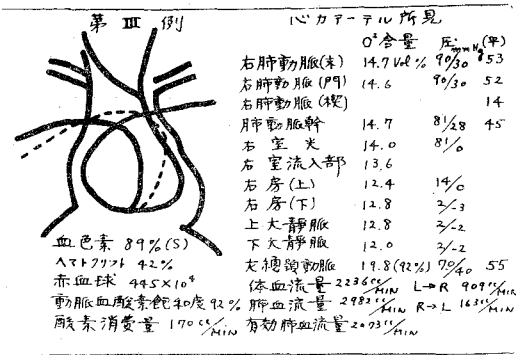 第 III 例
心カテーテル所見
O² 含量 圧 mmHg (平)
右肺動脈(末) 14.7 Vol % 90/30 53
右肺動脈(門) 14.6 90/30 52
右肺動脈(楔) 14
肺動脈幹 14.7 81/28 45
右室尖 14.0 81/0
右室流入部 13.6
右房(上) 12.4 14/0
右房(下) 12.8 2/-3
上大静脈 12.8 2/-2
下大静脈 12.0 2/-2
左總頸動脈 19.8(92%) 70/40 55
血色素 89%(S)
ヘマトクリット 42%
赤血球 445×10⁴
動脈血酸素飽和度 92%
酸素消費量 170 cc/MIN
体血流量 2236 cc/MIN L→R 909 cc/MIN
肺血流量 2982 cc/MIN R→L 163 cc/MIN
有効肺血流量 2073 cc/MIN